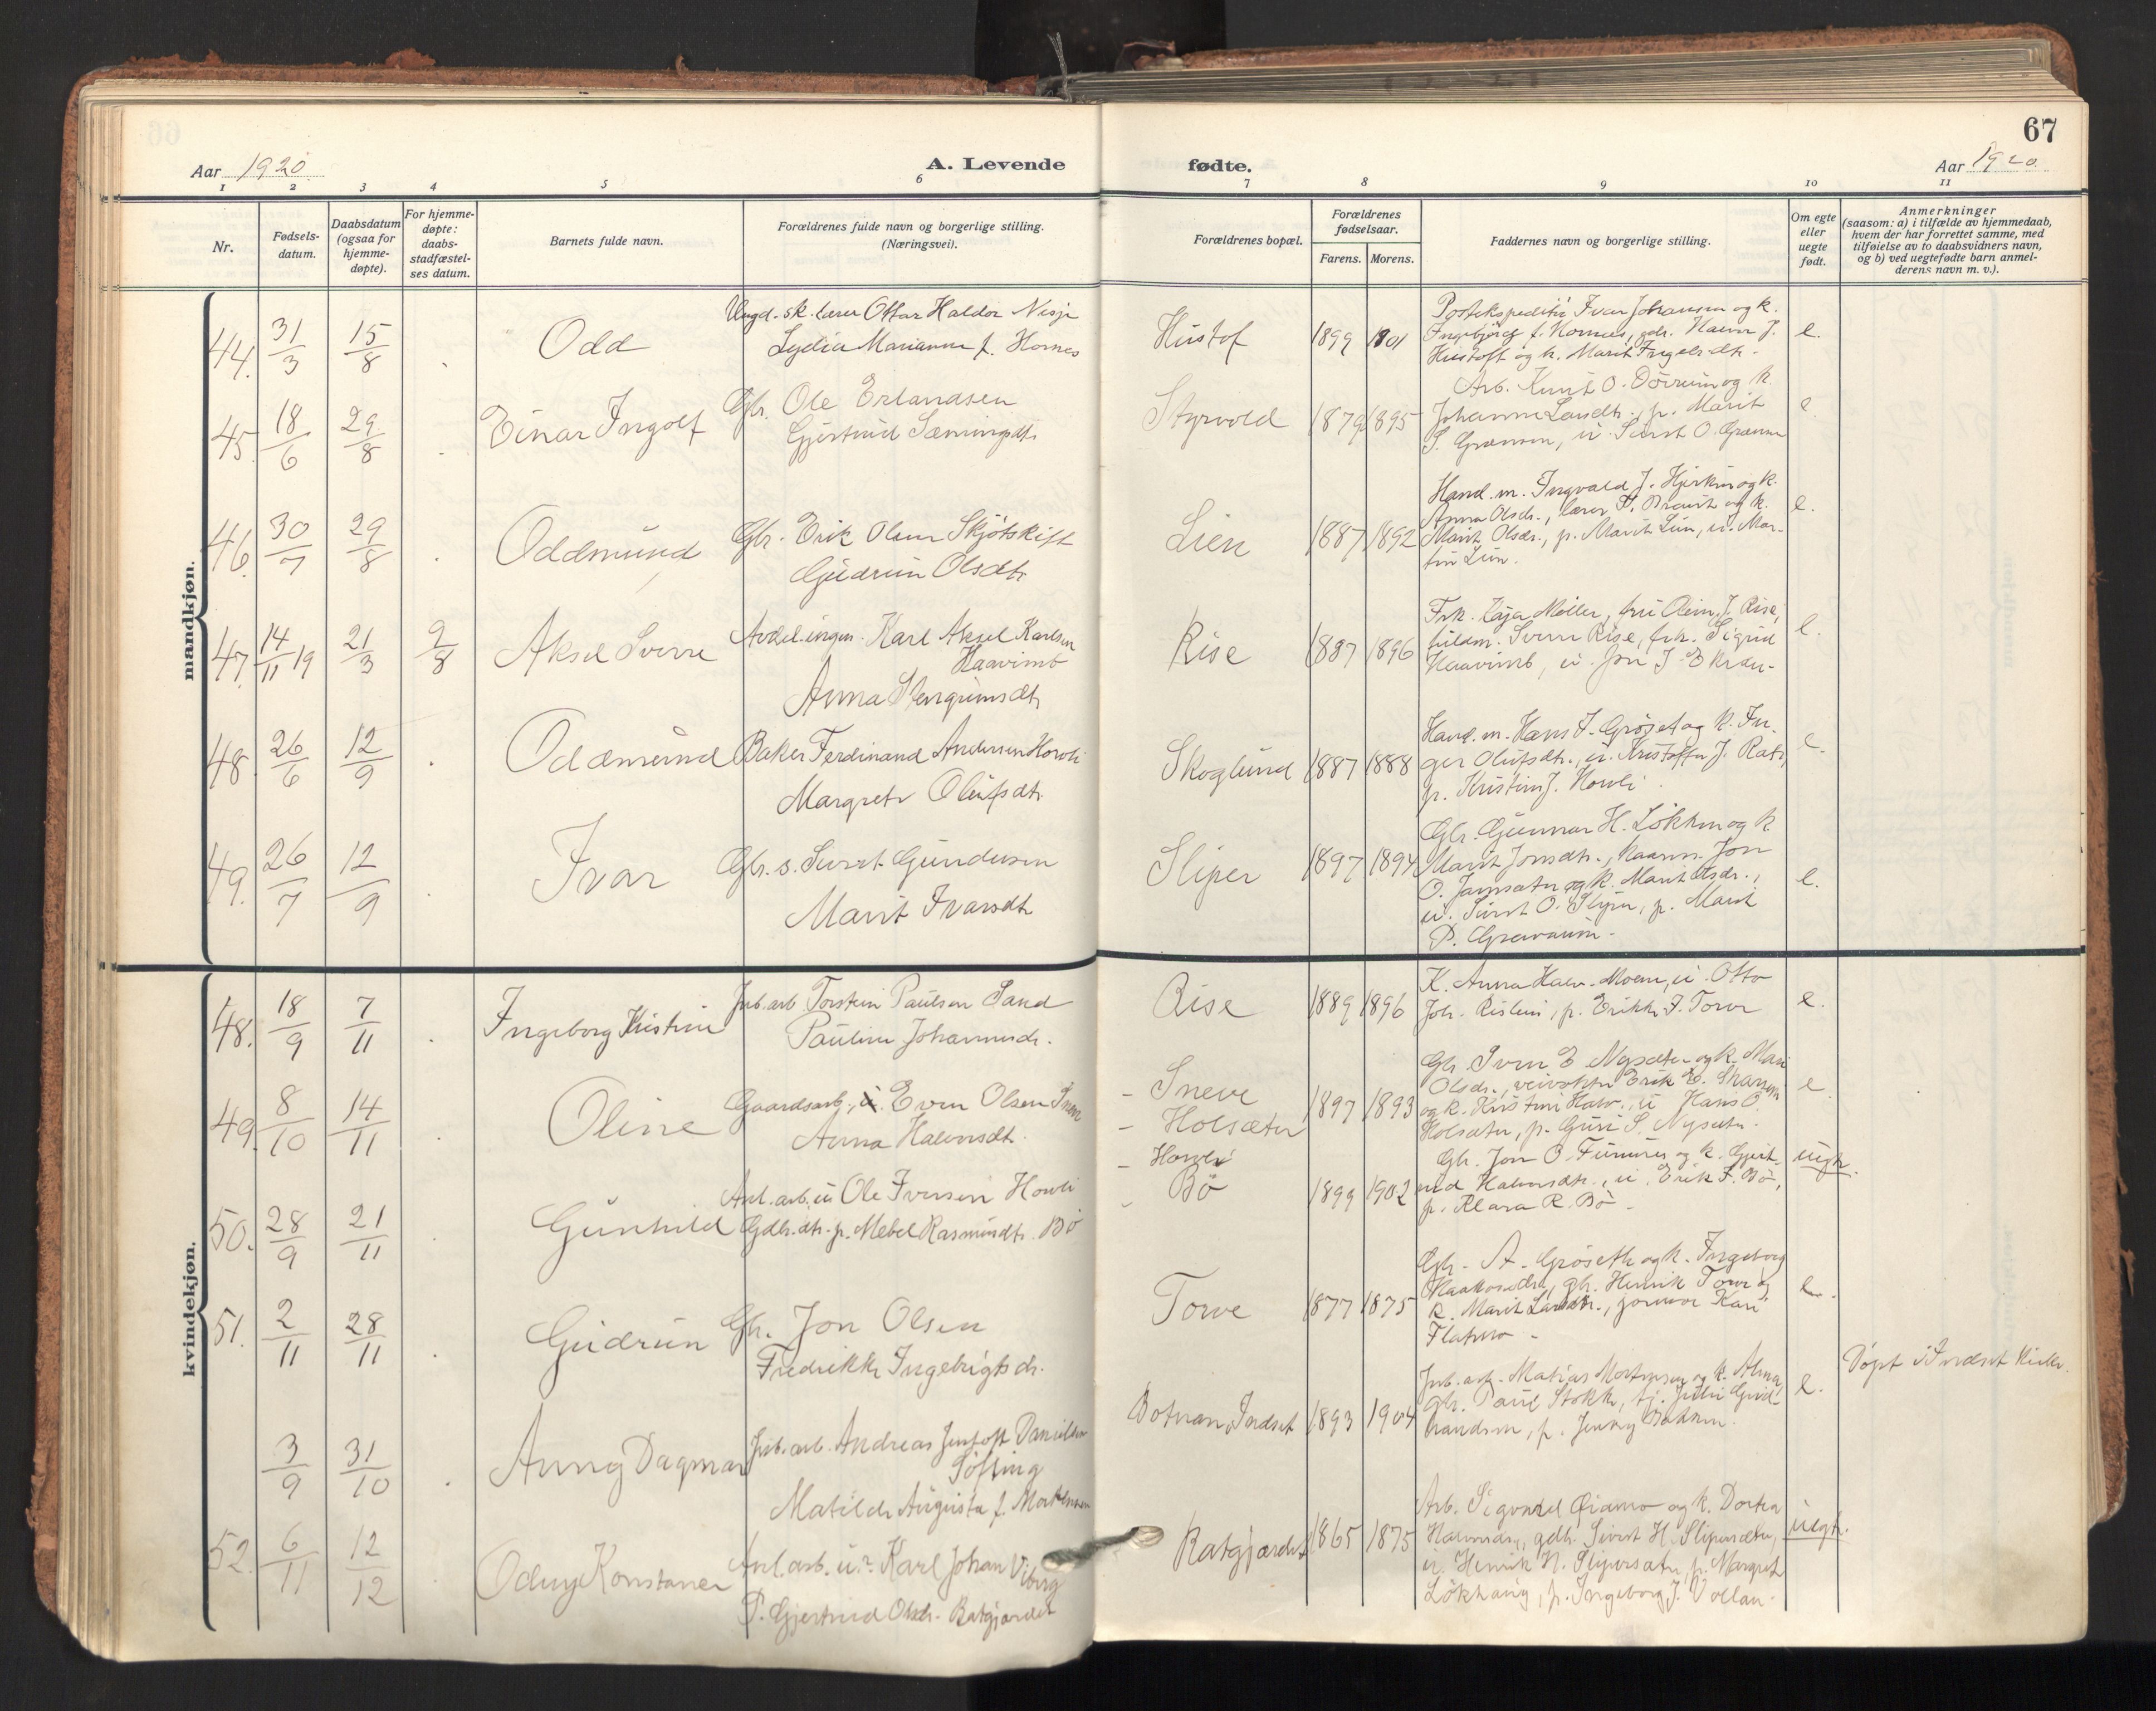 67
Aar 1920
A. Levende
fødte.
Aar 1920
1 2 3 4 5 6 7 8 9 10 11
Nr.
Fødsels-
datum.
Daabsdatum
(ogsaa for
hjemme-
døpte).
For hjemme-
døpte:
daabs-
stadfæstel-
ses datum.
Barnets fulde navn.
Forældrenes fulde navn og borgerlige stilling.
(Næringsvei).
Forældrenes bopæl.
Forældrenes
fødselsaar.
Farens. Morens.
Faddernes navn og borgerlige stilling.
Om egte
eller
uegte
født.
Anmerkninger
(saasom: a) i tilfælde av hjemmedaab,
hvem der har forrettet samme, med
tilføielse av to daabsvidners navn,
og b) ved uegtefødte barn anmel-
derens navn m. v.).
mandkjøn.
44. 31/3 15/8 Odd
Ungd. sk. lærer Ottar Haldor Nisja
Lydia Marianne f. Hornes
Hustof 1899 1901
Postekspeditør Ivar Johansen og k.
Ingebjørg f. Hornes, gdr. Halvor J.
Hustoft og k. Marit Ingelsdtr.
e.
45. 18/6 29/8 Einar Ingolf
Gbr. Ole Erlandsen
Gjertrud Sæmingsdtr.
Styrvold 1879 1895
Arb. Knut O. Dørrum og k.
Johanne Larsdtr., p. Marit
S. Grønnen, u. Sivert O. Grønnen
e.
46. 30/7 29/8 Oddmund
Gbr. Erik Olsen Skjøtskift
Gudrun Olsdtr.
Lien 1887 1892
Hand.m. Ingvald J. Hjerkin og k.
Anna Olsdr., lærer P. Brandt og k.
Marit Olsdr., p. Marit Lien, u. Mar-
tin Lien.
e.
47. 14/11 19 21/3 9/8 Aksel Sverre
Avdel.ingen. Karl Aksel Karlsen
Haavimb
Anna Stengrimsdtr.
Rise 1887 1896
Frk. Laja Møller, fru Olein J. Rise,
fuldm. Sverre Rise, frk. Sigrid
Haavimb, u. Jon J.
e.
48. 26/6 12/9 Oddmund
Baker Ferdinand Andersen Horvli
Margrete Olufsdtr.
Skoglund 1887 1888
Hand.m. Hans F. Grøset og k. In-
ger Olufsdtr., u. Kristoffer J. Rat,
p. Kristine J. Horvli
e.
49. 26/7 12/9 Ivar
Gbr. s. Sivert Gundersen
Marit Ivarsdtr.
Sliper 1897 1894
Gbr. Gunnar H. Løkken og k.
Marit Jonsdtr., kaarm. Jon
O. Jamsæter og k. Marit Olsdr.,
u. Sivert O. Sliper, p. Marit
P.
e.
kvindekjøn.
48. 18/9 7/11 Ingeborg Kristine
Jnb.arb. Torstein Paulsen Sand
Pauline Johannesdr.
Rise 1889 1896
K. Anna Halv. Moen, u. Otto
Joh. Rislien, p. Erikke F. Torve
e.
49. 8/10 14/11 Oline
Gaardsarb., u. Even Olsen Sneve
Anna Halvorsdtr.
- Sneve
- Holsæter
1897 1893
Gbr. Sven E Nysæter og k. Mari
Olsdr., veivokter Erik E. Skarseim
og k. Kristine Halv., u. Hans O.
Holsæter, p. Guri S. Nysæter.
e
50. 28/9 21/11 Gunhild
Anl.arb. u. Ole Iversen Horvli
Gdbr.dtr. p. Mebel Rasmusdtr. Bø
- Horvli
- Bø
1899 1902
Gbr. Jon O. Furunes og k. Gjert-
rud Halvorsdtr., u. Erik F. Bø,
p. Klara R. Bø -
uegte.
51. 2/11 28/11 Gudrun
Gbr. Jon Olsen
Fredrikke Ingebrigtsdr.
Torve 1877 1875
Gbr. A. Grøseth og k. Ingeborg
Haakonsdtr., gbr. Henrik Torve og
k. Marit Larsdtr., jormor Kari
Flatmo -
e.
3/9 31/10 Anny Dagmar
Jnb.arb. Andreas Jentoft Danielsen
Søfting
Matilde Augusta f. Mortensen
Botnan, Indset 1893 1904
Jnb.arb. Matias Mortensen og k. Alma,
gbr. Paul Stokke, tj. Julie Gud-
brandsen, p. Jenny Bakken.
e.
Døpt i Indset kirke.
52. 6/11 12/12 Odny Konstanse
Anl.arb. u.? Karl Johan Viberg
P. Gjertrud Olsdr. Ratgjærdet
Ratgjærdet 1865 1875
Arb. Sigvald Øiamo og k. Dortea
Halvorsdr., gdbr. Sivert H. Slipersæter,
u. Henrik H. Slipersæter, p. Margret
Løkhaug, p. Ingeborg J. Vollan.
uegte.